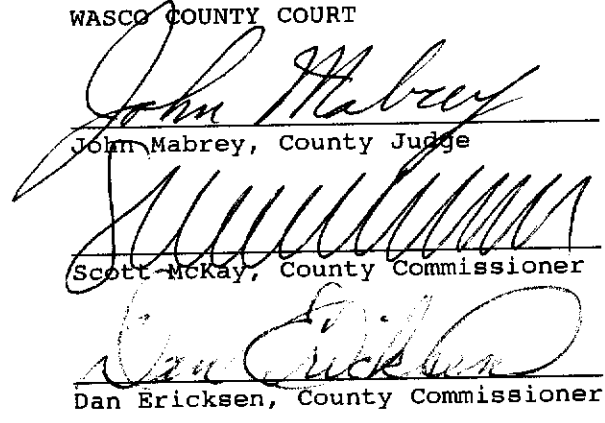 WASCO COUNTY COURT
John Mabrey
John Mabrey, County Judge
Scott McKay, County Commissioner
Dan Ericksen
Dan Ericksen, County Commissioner